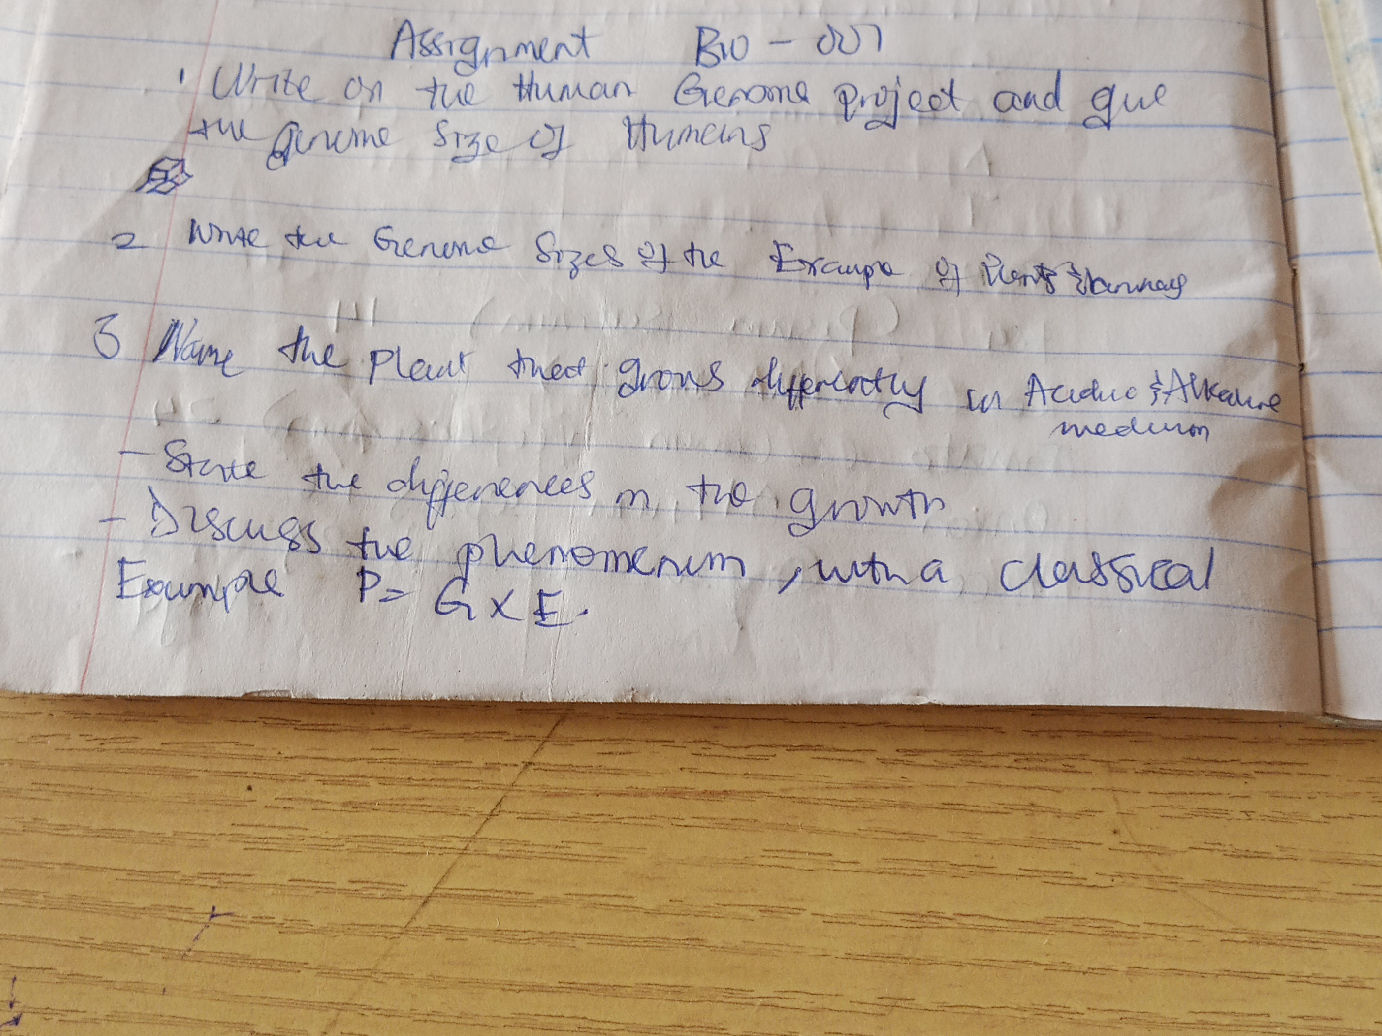 Assignment Bio - 007
1 Write on the Human Genome project and give
the genome size of Humans
2 Write the Genome Sizes of the Example of Plants &
3 Name the plant that grows differently in Acidic & Alkaline
medium
- State the differences in the growth
- Discuss the phenomenum, with a classical
Example P= G X E.